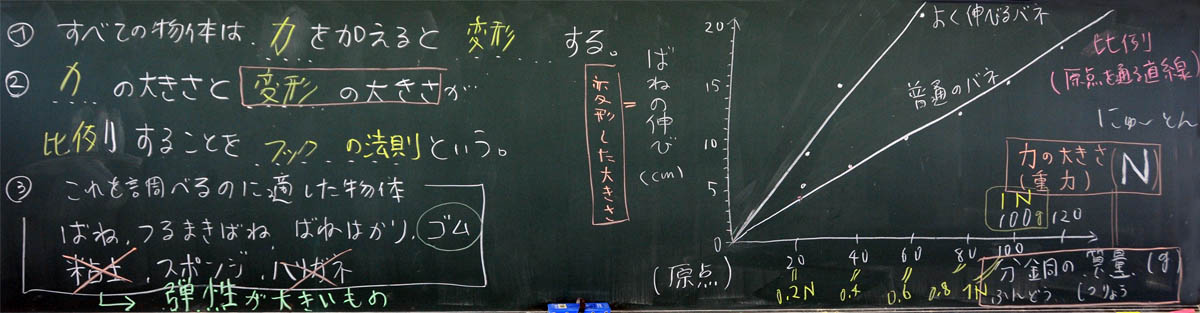 ① すべての物体は、力を加えると 変形 する。
② 力 の大きさと 変形 の大きさが
比例 することを フック の法則 という。
③ これを調べるのに適した物体
ばね、つるまきばね、ばねはかり、ゴム
粘土、スポンジ、ハリガネ
弾性が大きいもの
変形した大きさ
=
ばねの伸び
(cm)
20
15
10
5
0
(原点)
よく伸びるバネ
普通のバネ
比例
(原点を通る直線)
にゅーとん
力の大きさ
(重力)
(N)
1N
100g
20 40 60 80 100 120
0.2N 0.4 0.6 0.8 1N
分銅の質量 (g)
ふんどう しつりょう